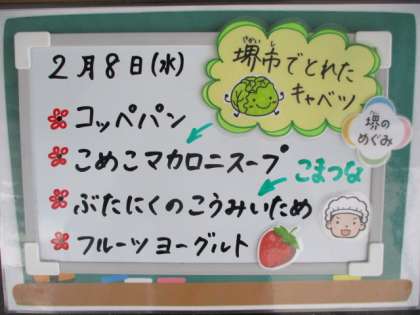 2月8日(水)
堺市でとれた
キャベツ
堺の
めぐみ
コッペパン
こめこマカロニスープ
こまつな
ぶたにくのこうみいため
フルーツヨーグルト